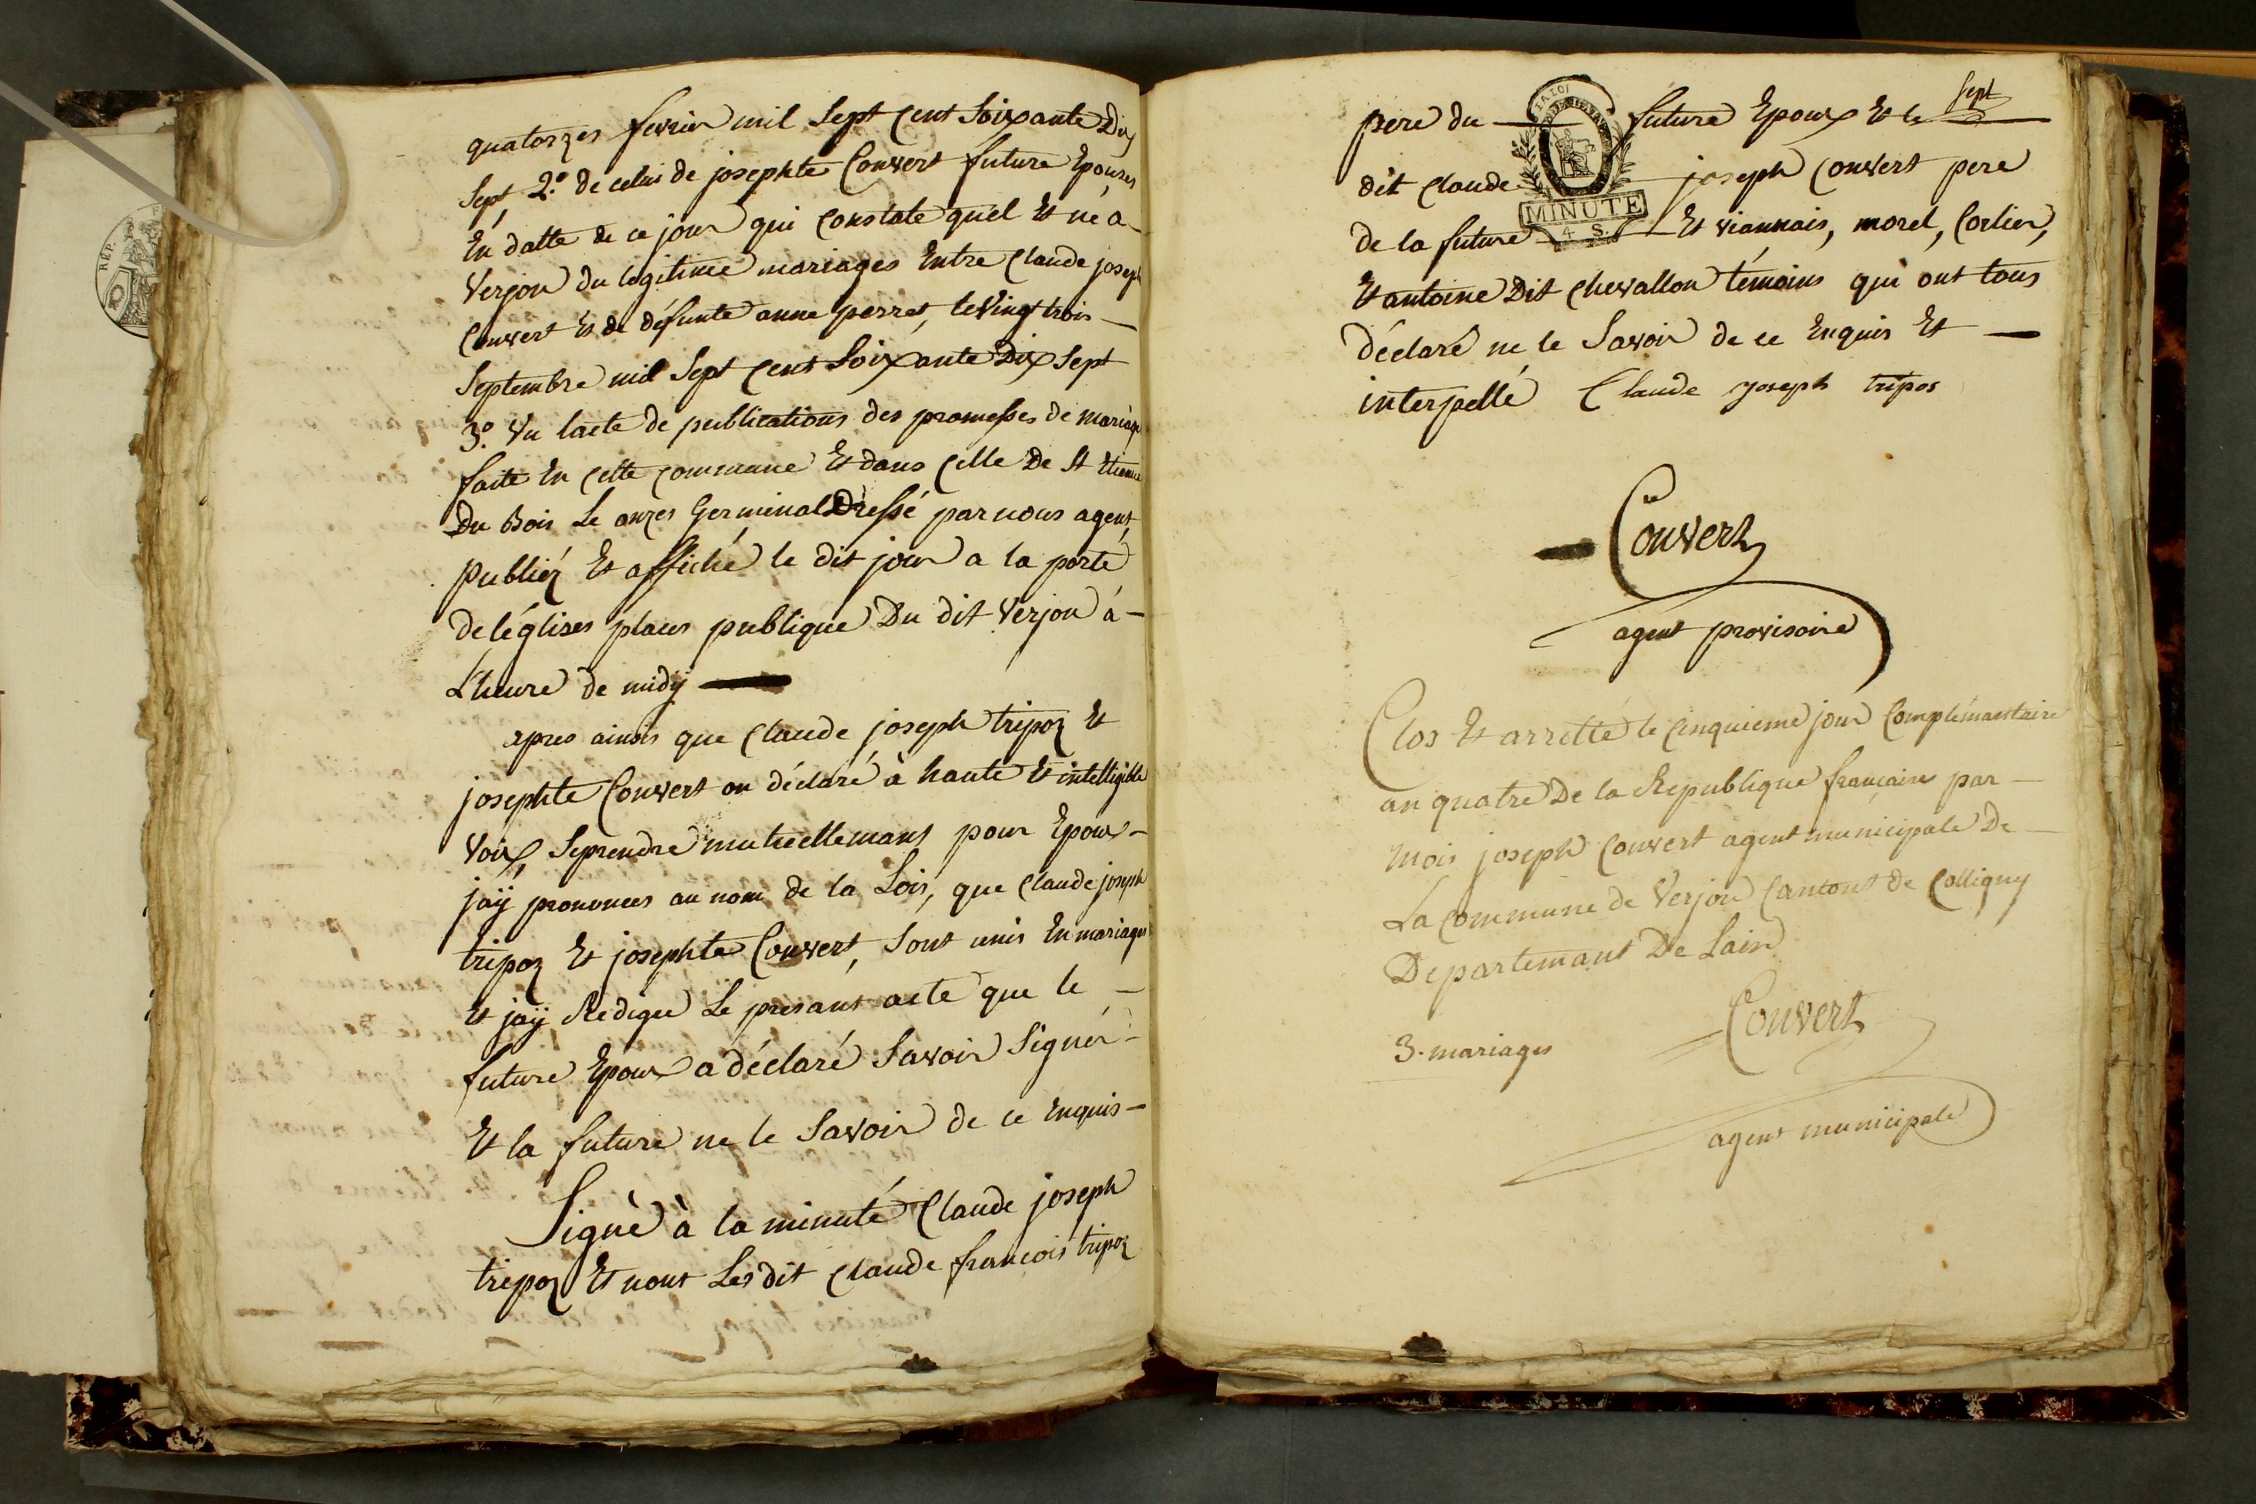 quatorzes fevrier mil Sept Cent Soixante Dix
Sept 2.º de celui de josephte Convert future Epouses
En datte de ce jour qui Constate quel Et né a
Verjon du legitime mariages Entre Claude joseph
Convert Et de défunte anne perret, le Vingt trois
Septembre mil Sept Cent Soixante Dix Sept
3.º Vu lacte de publications des promesses de mariage
faite En Cette Commune Et dans Celle De St Etienne
Du Bois Le onzes Germinal Dressé par nous agent
Publiéz Et affiché le dit jour a la porté
de léglises places publique Du dit Verjon à
L'heure de midÿ
apres ainsis que Claude joseph tripoz Et
josephte Convert on déclaré à haute Et intelligible
Voix, Seprendre mutuellemant pour Epoux
jaÿ prononces au nom de la Lois, que Claude joseph
tripoz Et josephte Convert, Sont unis En mariages
Et jaÿ Redigée Le presant acte que le
future Epoux a déclaré Savoir Signér
Et la future ne le Savoir de ce Enquis
Signé à la minuté Claude joseph
tripoz Et nont Les dit Claude francois tripoz
pere du future Epoux Et le Sept
dit Claude joseph Convert pere
de la future Et viannais, morel, Corlier,
Et antoine Dit Chevallon témoins qui ont tous
déclaré ne le Savoir de ce Enquis Et
interpellé Claude joseph tripos
MINUTE
4 S
Convert
agent provisoire
Clos Et arretté le Cinquieme jour Complémantaire
an quatre De la Republique française par
Mois joseph Convert agent municipale De
La Commune de Verjon Cantont de Colligny
Departemant De Lain
Convert
3. mariages
agent municipale
REP.